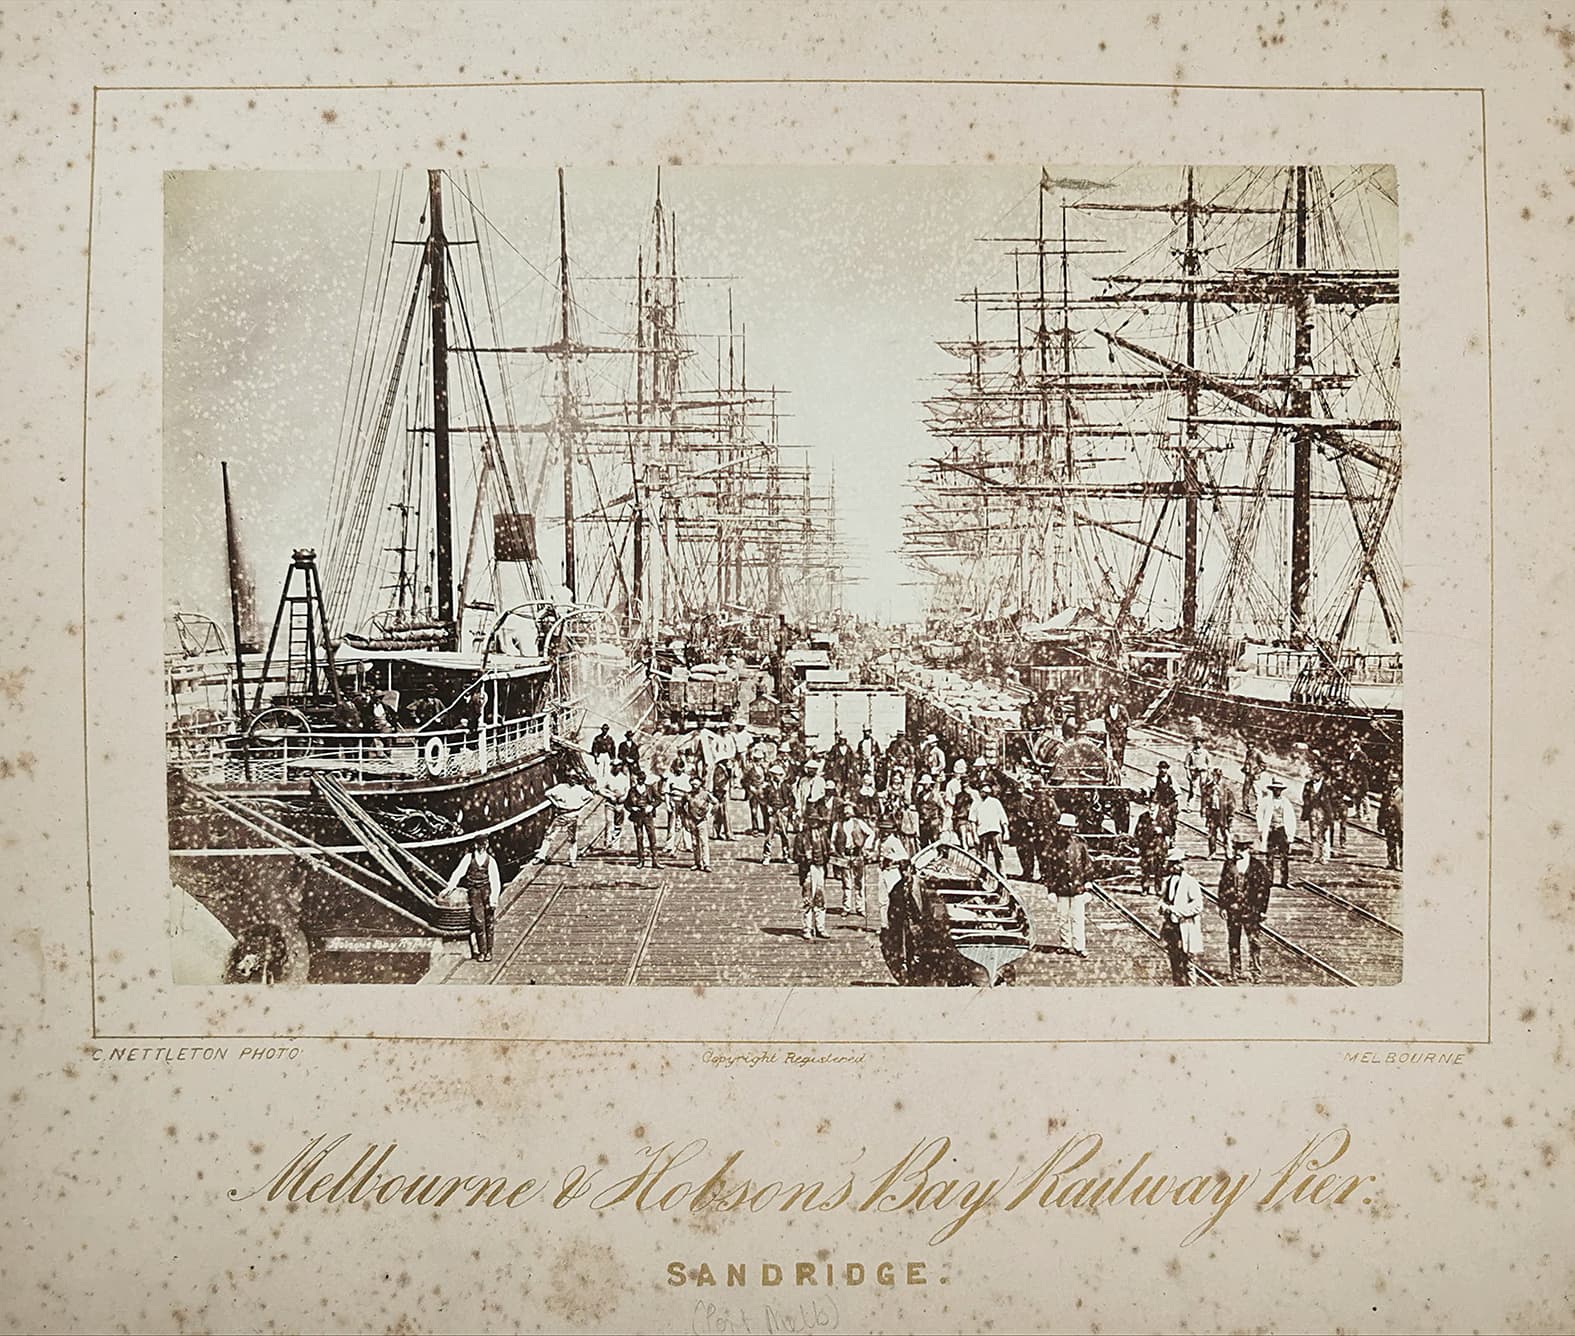 Hobsons Bay Ry Pier
C. NETTLETON PHOTO
Copyright Registered
MELBOURNE
Melbourne & Hobson's Bay Railway Pier.
SANDRIDGE.
(Port Melb)